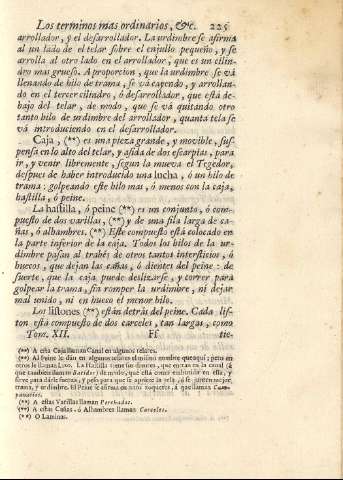 Los terminos mas ordinarios, &c. 225
arrollador, y el desarrollador. La urdimbre se afirma
al un lado de el telar sobre el enjullo pequeño, y se
arrolla al otro lado en el arrollador, que es un cilin-
dro mas grueso. A proporcion, que la urdimbre se vá
llenando de hilo de trama, se vá cayendo, y arrollan-
do en el tercer cilindro, ó desarrollador, que está de-
bajo del telar, de modo, que se vá quitando otro
tanto hilo de urdimbre del arrollador, quanta tela se
vá introduciendo en el desarrollador.
Caja, (**) es una pieza grande, y movible, sus-
pensa en lo alto del telar, y asida de dos escarpias, para
ir, y venir libremente, segun la mueva el Tegedor,
despues de haber introducido una lucha, ó un hilo de
trama: golpeando este hilo mas, ó menos con la caja,
hastilla, ó peine.
La hastilla, ó peine (**) es un conjunto, ó com-
puesto de dos varillas, (**) y de una fila larga de ca-
ñas, ó alhambres. (**) Este compuesto está colocado en
la parte inferior de la caja. Todos los hilos de la ur-
dimbre pasan al trabés de otros tantos intersticios, ó
huecos, que dejan las cañas, ó dientes del peine: de
suerte, que la caja puede deslizarse, y correr para
golpear la trama, sin romper la urdimbre, ni dejar
mal unido, ni en hueco el menor hilo.
Los listones (**) están detrás del peine. Cada lis-
ton está compuesto de dos carceles, tan largas, como
Tom. XII. Ff tie-
(**) A esta Caja llaman Canal en algunos telares.
(**) Al Peine le dán en algunos telares el mismo nombre que aqui; pero en
otros le llaman Lizo. La Hastilla tiene sus dientes, que entran en la canal (á
que tambien llaman
(**) A estas Varillas llaman
(**) A estas Cañas, ó Alhambres llaman Carceles.
(**) O Laminas.